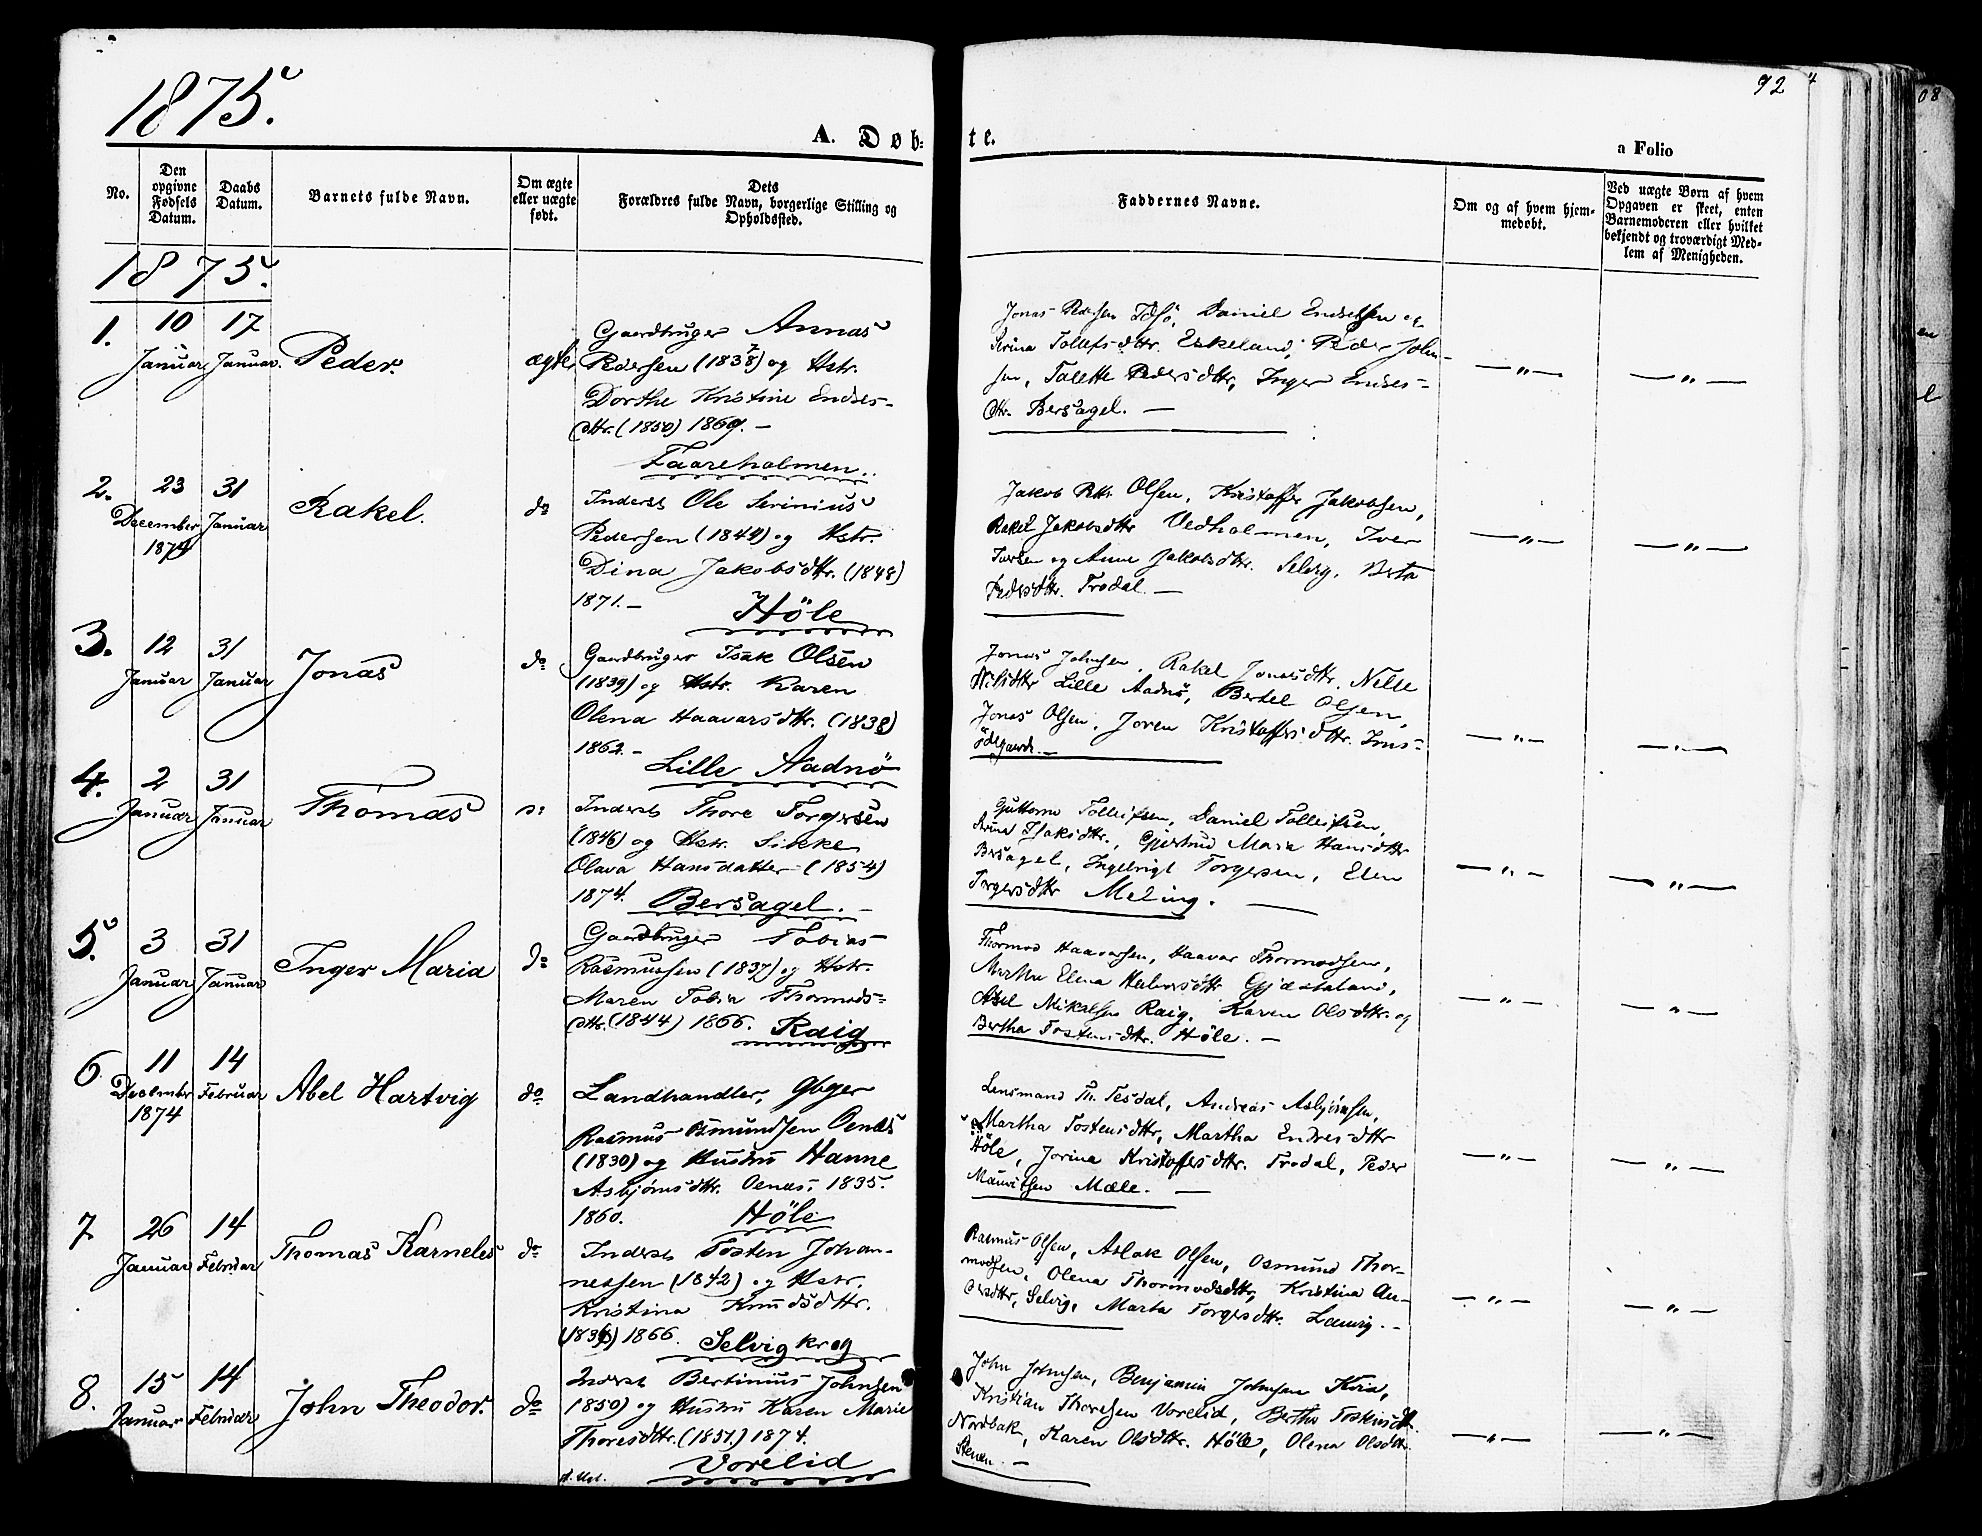 1875.
92
A. Døb-
te.
a Folio
No.
Den opgivne Fødsels Datum.
Daabs Datum.
Barnets fulde Navn.
Om ægte eller uægte født.
Dets Forældres fulde Navn, borgerlige Stilling og Opholdssted.
Faddernes Navne.
Om og af hvem hjemmedøbt.
Ved uægte Børn af hvem Opgaven er skeet, enten Barnemoderen eller hvilket bekjendt og troværdigt Medlem af Menigheden.
1875.
1. 10 Januar 17 Januar. Peder. ægte
Gaardbruger Annas
Pedersen (1838) og Hstr.
Dorthe Kristine Endres-
dttr. (1850) 1869. —
Faareholmen.
Jonas Pedersen Idsö, Daniel Endresen og
Serina Tollefsdttr. Eskeland, Peder John-
sen, Talette Pedersdttr, Inger Endres-
dttr. Bersagel. —
— „ — — „ —
2. 23 December 1874 31 Januar Rakel. do
Inderst Ole Serinius
Pedersen (1849) og Hstr.
Dina Jakobsdttr. (1848)
1871. — Höle
Jakob Olsen, Kristoffer Jakobsen,
Rakel Jakobsdttr Vedholmen, Iver
Iversen og Anne Jakobsdttr. Selvig, Berta
Pedersdttr. Frodal. —
— „ — — „ —
3. 12 Januar 31 Januar Jonas do
Gaardbruger Isak Olsen
(1839) og Hstr. Karen
Olena Haavarsdttr. (1838)
1862. — Lille Aadnö
Jonas Johnsen, Rakel Jonasdttr, Nelle
Nilsdttr Lille Aadnö, Bertel Olsen,
Jonas Olsen, Joren Kristoffersdttr.
Ödegaard. —
— „ — — „ —
4. 2 Januar 31 Januar Thomas
Inderst Thore Torgersen
(1846) og Hstr. Sikke
Olava Hansdatter (1854)
1874. Bersagel. —
Guttorm Tolleifsen, Daniel Tolleifsen,
Serina Isaksdttr., Gjertrud Maria Hansdttr
Bersagel, Ingebrigt Torgersen, Elen
Torgersdttr Meling. —
— „ — — „ —
5. 3 Januar 31 Januar Inger Maria do
Gaardbruger Tobias
Rasmussen (1837) og Hstr.
Maren Tobia Thormods-
dttr. (1844) 1866. Raig
Thormod Haavarsen, Haavar Thormodsen,
Marthe Elena Gjæsteland,
Abel Mikalsen Raig, Karen Olsdttr. og
Bertha Tostensdttr. Höle. —
— „ — — „ —
6 11 December 1874 14 Februar Abel Hartvig do
Landhandler, Gbger
Rasmus Osmundsen Oenæs
(1830) og Hustru Hanne
Asbjörnsdttr. Oenæs, 1835.
1860. Höle
Lensmand Th. Tesdal, Andreas Asbjörnsen,
Martha Tostensdttr, Martha Endresdttr
Höle, Jorina Kristoffersdttr. Frodal, Peder
Mauritsen Mæle. —
— „ — — „ —
7 26 Januar 14 Februar Thomas Karneles do
Inderst Tosten Johan-
nessen (1842) og Hstr.
Kristina Knudsdttr.
1866. Selvigkrog
Rasmus Olsen, Aslak Olsen, Osmund Thor-
modsen, Olena Thormodsdttr, Kristina An-
dersdttr, Selvig, Marta Torgersdttr. Lauvig. —
— „ — — „ —
8. 15 Januar 14 Februar John Theodor. do
Inderst Bertinius Johnsen
1850) og Hustru Karen Marie
Thoresdttr. (1851.) 1874.
Vorelid
John Johnsen, Benjamin Johnsen Kvia,
Kristian Thoresen Vorelid, Bertha Tostensdttr.
Nordbak, Karen Olsdttr. Höle, Olena Olsdttr.
— „ — — „ —